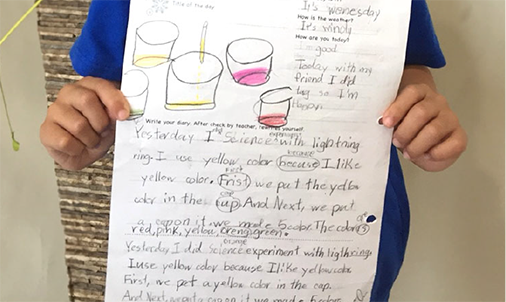 Title of the day
It's wenesday
How is the weather?
It's windy
How are you today?
I good
Today with my
friend I did
tag so I'm
Write your diary. After check by teacher, rewrite yourself.
did experiment
Yesterday I Science with lightning
because
ring. I use yellow color because I like
First
yellow color. Frist we put the yellow
cap
color in the cup And Next, we put
a cap on it. we made 5 color. The colors
red, pink, yellow, oreng, green.
orange
Yesterday I did Science experiment with lighting.
I use yellow color because I like yellow color.
First, we put a yellow color in the cap.
And Next, we put a cap on it we made 5 color